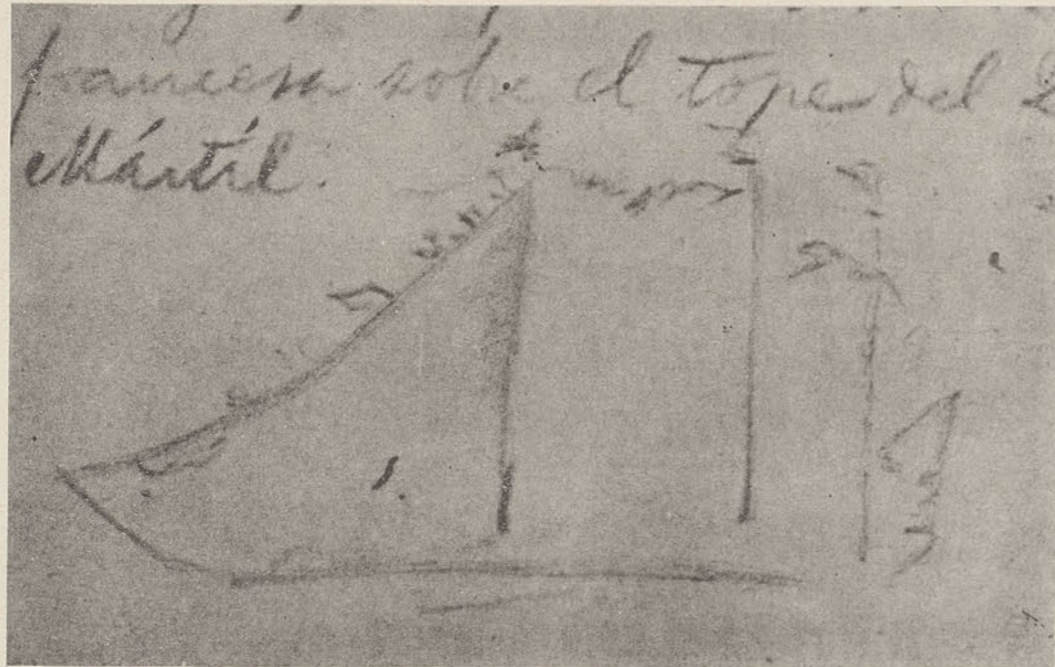 francesa sobre el tope del 2
Mástil.